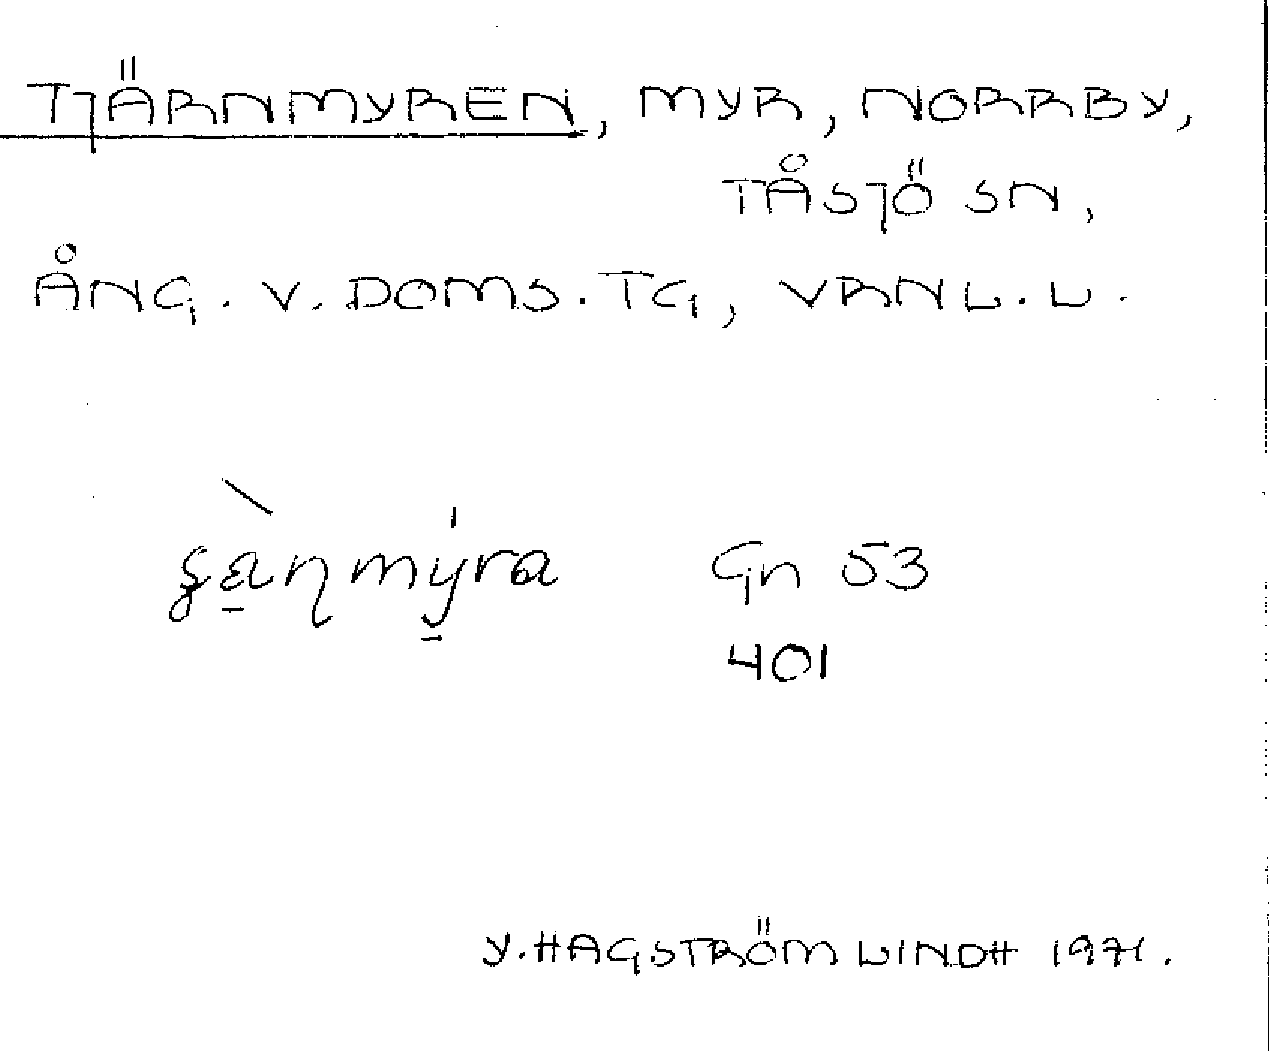 TJÄRNMYREN, MYR, NORRBY,
TÅSJÖ SN,
ÅNG. V. DOMS. TG, VRNL. L.
Gn 53
401
Y. HAGSTRÖM LINDH 1971.